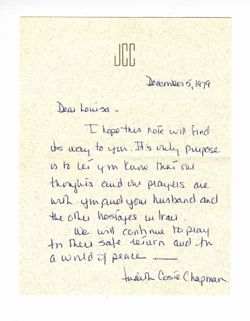 JCC
December 5, 1979
Dear Louisa -
I hope this note will find
its way to you. It's only purpose
is to let you know that our
thoughts and our prayers are
with you and your husband and
the other hostages in Iran.
We will continue to pray
for their safe return and for
a world of peace —
Judith Chapman